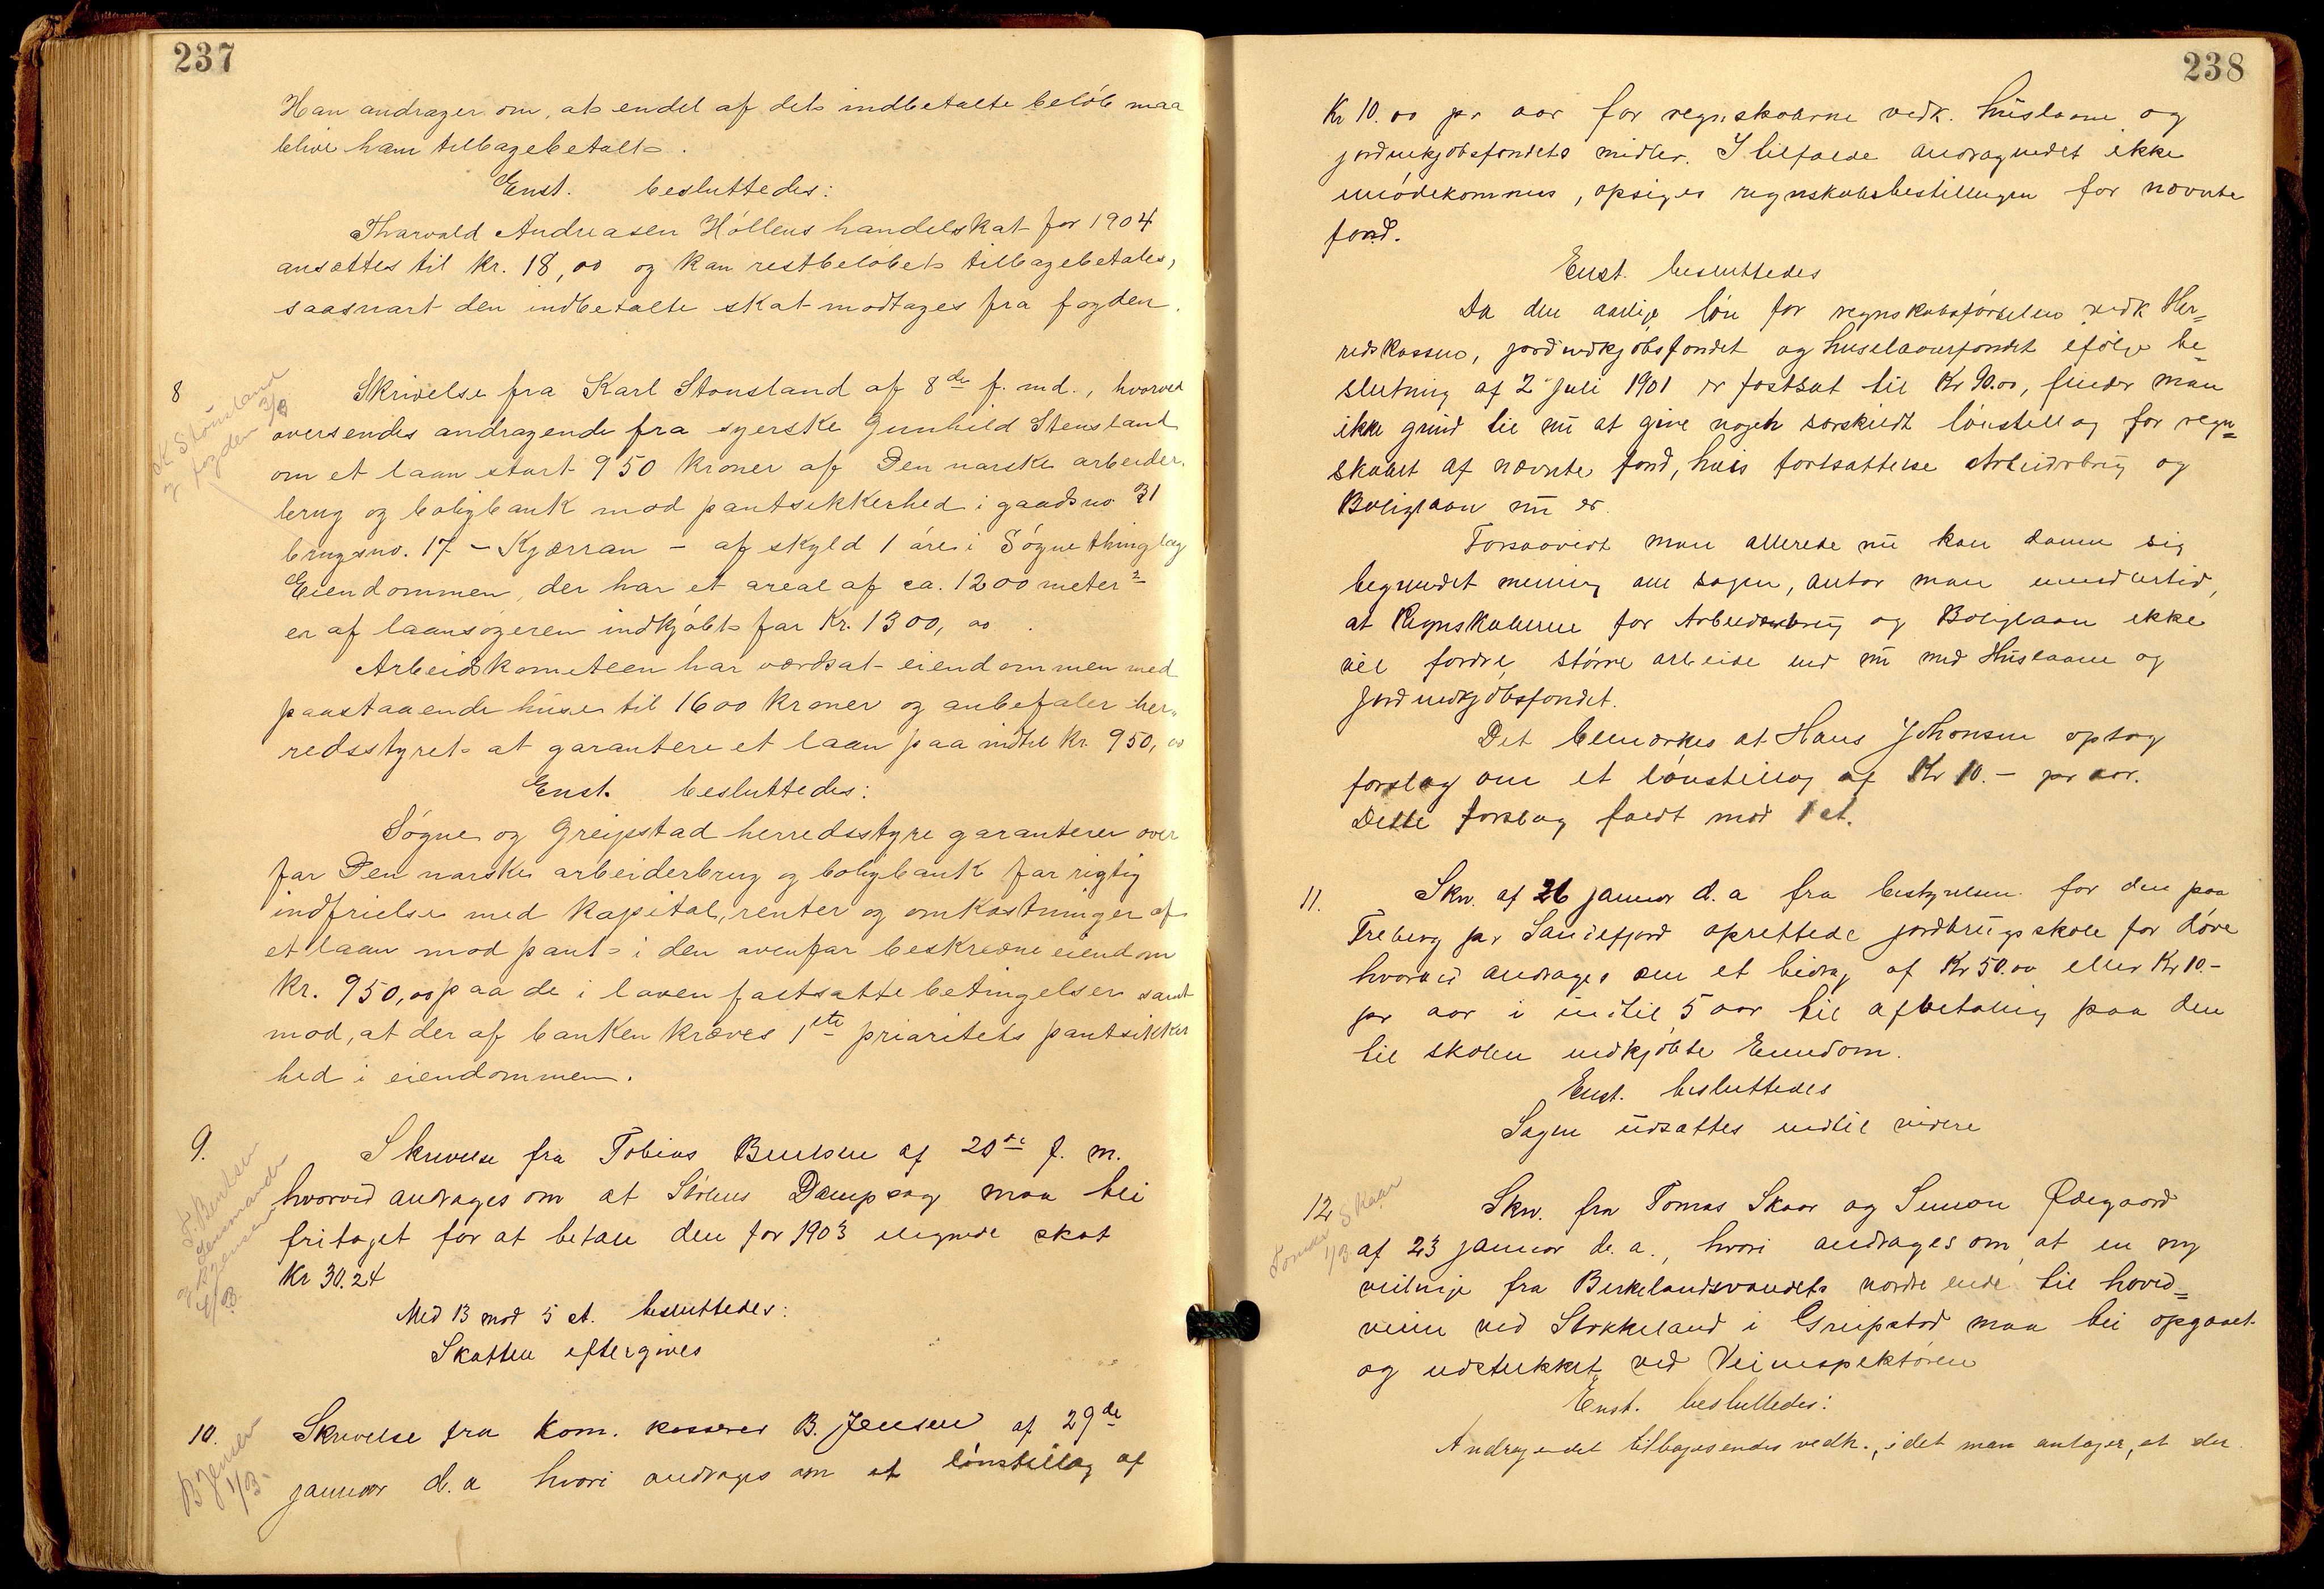 237
Han andrager om, at endel af det indbetalte beløb maa
blive ham tilbagebetalt.
Enst. besluttedes:
Thorvald Andreasen Höllens handelskat for 1904
ansættes til kr. 18,00 og kan restbeløbet tilbagebetales,
saasnart den indbetalte skat modtages fra fogden.
8
K. Stousland
og fogden 3/3
Skrivelse fra Karl Stousland af 8de f. md., hvorved
oversendes andragende fra syerske Gunhild Stensland
om et laan stort 950 kroner af Den norske arbeider-
brug og boligbank mod pantsikkerhed i gaardsno 31
brugsno. 17 – Kjærran – af skyld 1 øre i Søgne thinglag
Eiendommen, der har et areal af ca. 1200 meter²
er af laansøgeren indkjøbt for Kr. 1300,00.
Arbeidskomiteen har værdsat eiendommen med
paastaaende huse til 1600 kroner og anbefaler her-
redsstyret at garantere et laan paa indtil kr. 950,00
Enst. besluttedes:
Søgne og Greipstad herredsstyre garanterer over
for Den norske arbeiderbrug og boligbank for rigtig
indfrielse med kapital, renter og omkostninger af
et laan mod pant i den ovenfor beskrevne eiendom
kr. 950,00 paa de i loven fastsatte betingelser samt
mod, at der af banken kræves 1ste prioritets pantsikker
hed i eiendommen.
9.
T. Berntsen
og lensmanden
Skrivelse fra Tobias Berntsen af 20de f. m.
hvorved andrages om at Dampsag maa bli
fritaget for at betale den for 1903 ilignede skat
Kr 30.24
Med 13 mod 5 st. besluttedes:
Skatten eftergives
10.
B Jensen
1/3
Skrivelse fra Kom. kasserer B. Jensen af 29de
januar d. a hvori andrages om et lønstillæg af
238
Kr 10.00 pr aar for regnskaberne vedk. huslaane og
jordindkjøbsfondets midler. I tilfælde andragendet ikke
imødekommes, opsiges regnskabsbestillingen for nævnte
fond.
Enst. besluttedes
Da den aarlige løn for regnskabsførselen vedk Her=
redskassen, jordindkjøbsfondet og huselaanefondet ifølge be=
slutning af 2 juli 1901 er fastsat til Kr 90.00, finder man
ikke grund til nu at give nogen særskildt lønstillæg for regn=
skabet af nævnte fond, hvis fortsættelse Arbeiderbrug og
Boliglaan nu er.
Forsaavidt man allerede nu kan danne sig
begrundet mening om sagen, antar man imidlertid,
at Regnskaberne for Arbeiderbrug og Boliglaan ikke
vil fordre større arbeide end nu med Huslaane og
jordindkjøbsfondet.
Det bemærkes at Hans Johansen optog
forslag om et lønstillæg af Kr 10.– pr aar.
Dette forslag faldt mod 1 st.
11.
Skr. af 26 januar d. a fra bestyrelsen for den paa
Treberg pr Sandefjord oprettede jordbrugsskole for døve
hvorved andrages om et bidrag af Kr 50.00 eller Kr 10.–
pr aar i indtil 5 aar til afbetaling paa den
til skolen indkjøbte Eiendom.
Enst. besluttedes
Sagen udsættes indtil videre
12
Tomas Skaar
1/3
Skr. fra Tomas Skaar og Simon Ødegaard
af 23 januar d. a., hvori andrages om at en ny
veilinje fra Birkelandsvandets nordre ende til hoved=
veien ved Stokkeland i Greipstad maa bli opgaaet
og udstukket ved Veiinspektøren
Enst. besluttedes:
Andragendet tilbagesendes vedk., idet man antager, at der